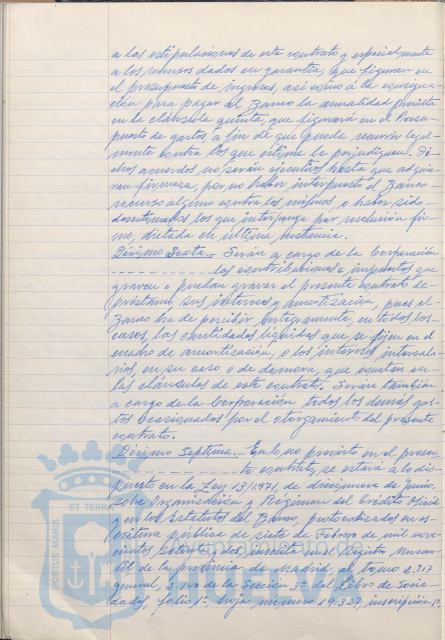 a las estipulaciones de este contrato y especialmente
a los recursos dados en garantía, que figuran en
el presupuesto de ingresos, así como a la consigna-
ción para pagar al Banco la anualidad prevista
en la cláusula quinta, que figurará en el Presu-
puesto de gastos, a fin de que pueda recurrir legal-
mente contra los que estime le perjudiquen. Di-
chos acuerdos no serán ejecutivos hasta que adquie-
ran firmeza, por no haber interpuesto el Banco
recurso alguno contra los mismos o haber sido
desestimados los que interponga por resolución fir-
me, dictada en última instancia.
Décimo Sexta.- Serán a cargo de la Corporación
las contribuciones e impuestos que
graven o puedan gravar el presente contrato de
préstamo sus intereses y amortización, pues el
Banco ha de percibir íntegramente, en todos los
casos, las cantidades líquidas que se fijan en el
cuadro de amortización, o los intereses intercala-
rios, en su caso o de demora, que constan en
las cláusulas de este contrato. Serán también
a cargo de la Corporación todos los demás gas-
tos ocasionados por el otorgamiento del presente
contrato.
Décimo Septima.- En lo no previsto en el presen-
te contrato, se estará a lo dis-
puesto en la Ley 13/1971, de diecinueve de Junio
sobre Organización y Régimen del Crédito Oficial
y en los Estatutos del Banco, protocolizados en es-
critura pública de siete de Febrero de mil nove-
cientos setenta y dos inscrita en el Registro Mercan-
til de la provincia de Madrid, al tomo 2.317
general, de la Sección 3ª del Libro de Socie-
dades, folio 1º, hoja número 19.327, inscripción 1ª
PORTUS MARIS
ET TERRAE
HUELVA